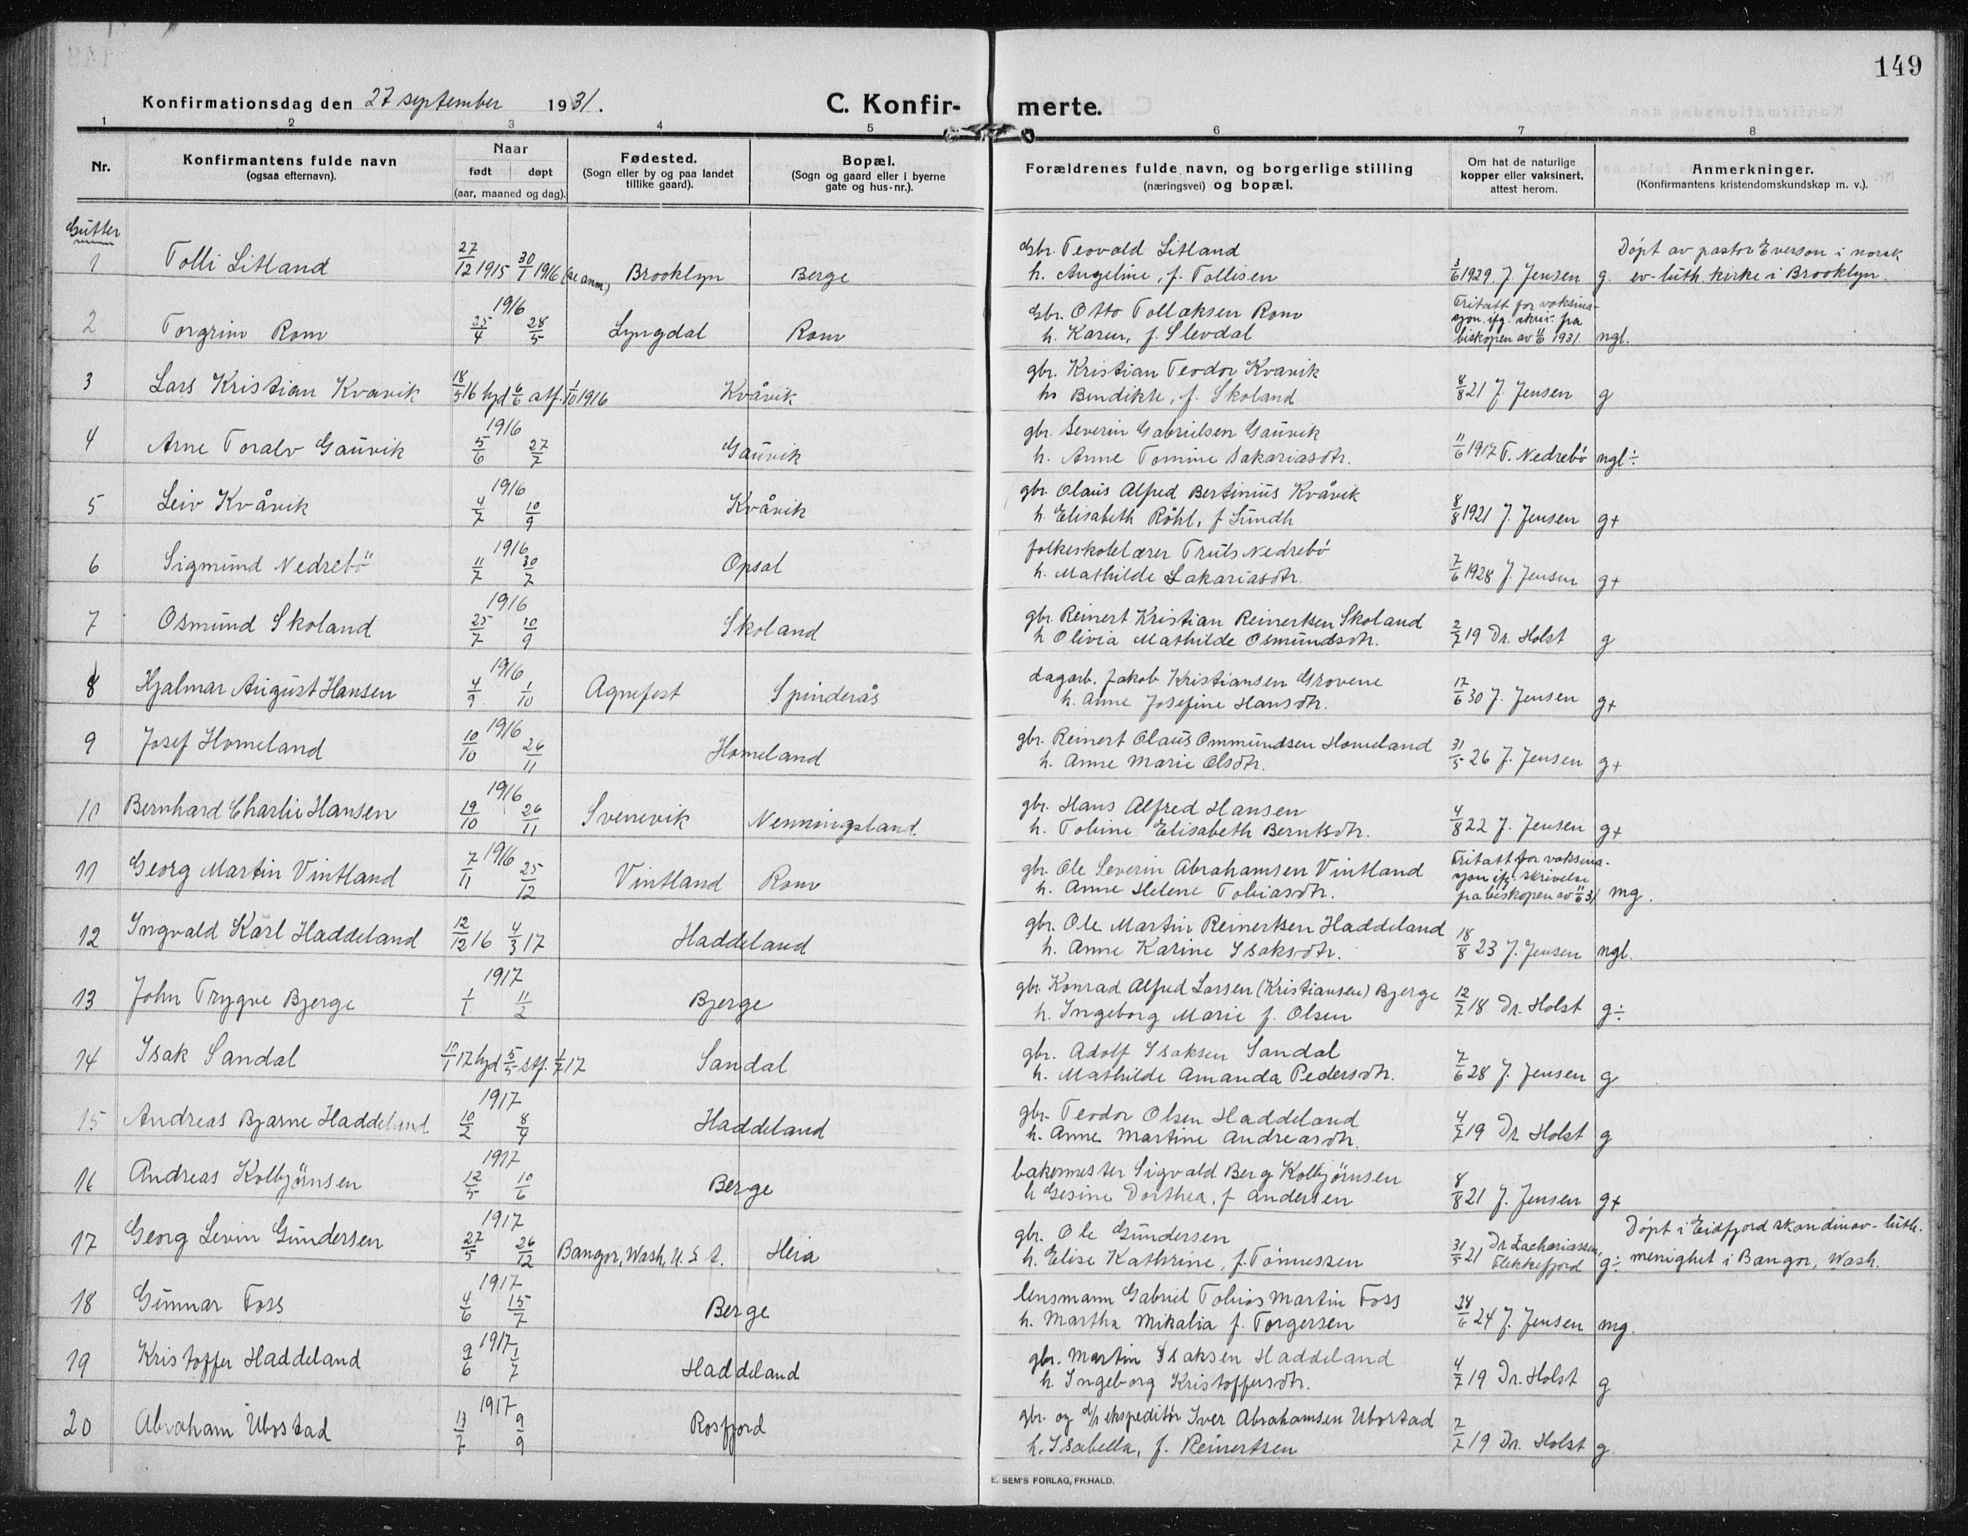 149
Konfirmationsdag den 27 september 1931.
C. Konfir- merte.
1 2 3 4 5 6 7 8
Nr.
Konfirmantens fulde navn
(ogsaa efternavn).
Naar
født døpt
(aar, maaned og dag).
Fødested.
(Sogn eller by og paa landet
tillike gaard).
Bopæl.
(Sogn og gaard eller i byerne
gate og hus-nr.).
Forældrenes fulde navn, og borgerlige stilling
(næringsvei) og bopæl.
Om hat de naturlige
kopper eller vaksinert,
attest herom.
Anmerkninger.
(Konfirmantens kristendomskundskap m. v.).
Gutter
1 Tolli Litland 27/12 1915 30/1 1916 (se anm.) Brooklyn Berge gbr. Teovald Litland
h. Angeline, f. Tollisen 3/6 1929. J. Jensen g. Döpt av pastor Everson i norsk
ev-luth. kirke i Brooklyn.
2 Torgrim Rom 1916 25/4 28/5 Lyngdal Rom gbr. Otto Tollaksen Rom
h. Karen, f. Slevdal Fritatt for vaksina-
sjon ifg. skriv. fra
biskopen av 11/6 1931. ngl.
3 Lars Kristian Kvavik 18/5 16 hjd 6/6 atf. 1/10 1916 Kvåvik gbr. Kristian Teodor Kvavik
h. Bendikte, f. Skoland 8/8 21 J. Jensen g
4 Arne Toralv Gauvik 1916 5/6 27/7 Gauvik gbr. Severin Gabrielsen Gauvik
h. Anne Tomine Sakariasdtr. 11/6 1917 T. Nedrebö ngl÷
5 Leiv Kvåvik 1916 4/7 10/9 Kvåvik gbr. Olaus Alfred Bertinius Kvåvik
h. Elisabeth Röhl, f Lundh 8/8 1921 J. Jensen g+
6 Sigmund Nedrebö 1916 11/7 30/7 Opsal folkeskolelærer Truls Nedrebö
h. Mathilde Sakariasdtr. 7/6 1928 J. Jensen g+
7 Osmund Skoland 1916 25/7 10/9 Skoland gbr. Reinert Kristian Reinertsen Skoland
h Olivia Mathilde Osmundsdtr. 2/7 19 Dr. Holst g
8 Hjalmar August Hansen 1916 4/9 1/10 Agnefest Spinderås dagarb. Jakob Kristiansen Grovene
h. Anne Josefine Hansdtr. 17/6 30 J. Jensen g+
9 Josef Homeland 1916 10/10 26/11 Homeland gbr. Reinert Olaus Ommundsen Homeland
h. Anne Marie Olsdtr. 31/5 26 J. Jensen g+
10 Bernhard Charlie Hansen 1916 19/10 26/11 Svenevik Nenningsland. gbr. Hans Alfred Hansen
h. Tobine Elisabeth Berntsdtr. 4/8 22 J. Jensen g+
11 Georg Martin Vintland 1916 7/11 25/12 Vintland Rom gbr. Ole Severin Abrahamsen Vintland
h. Anne Helene Tobiasdtr. Fritatt for vaksina-
sjon ifg. skrivelse
fra biskopen av 11/6 31 mg.
12 Ingvald Karl Haddeland 12/12 16 4/3 17 Haddeland gbr. Ole Martin Reinertsen Haddeland
h. Anne Karine Isaksdtr. 18/8 23 J. Jensen ngl.
13 John Trygve Bjerge 1917 1/1 11/2 Bjerge gbr. Konrad Alfred Larsen (Kristiansen) Bjerge
h. Ingeborg Marie f. Olsen 12/7 18 Dr. Holst g÷
14 Isak Sandal 10/1 17 hjd 5/5 stf. 1/7 17 Sandal gbr. Adolf Isaksen Sandal
h. Mathilde Amanda Pedersdtr. 7/6 28 J. Jensen g
15 Andreas Bjarne Haddeland 1917 10/2 8/4 Haddeland gbr. Teodor Olsen Haddeland
h. Anne Martine Andreasdtr. 4/7 19 Dr Holst g
16 Andreas Kolbjörnsen 1917 12/5 10/6 Berge bakermester Sigvald Berg Kolbjörnsen
h Gesine Dorthea, f Andersen 8/8 21 J. Jensen g+
17 Georg Levin Gundersen 1917 27/5 26/12 Bangor, Wash, U.S.A. Heia gbr. Ole Gundersen
h. Elise Kathrine, f. Tønnessen 31/5 21 Dr Zachariassen,
Flekkefjord g÷ Döpt i Eidfjord skandinav-luth.
menighet i Bangor, Wash.
18 Gunnar Foss 1917 4/6 15/7 Berge lensmann Gabriel Tobias Martin Foss
h. Martha Mikalia f. Torgersen 28/6 24 J. Jensen mg.
19 Kristoffer Haddeland 1917 9/6 1/7 Haddeland gbr. Martin Isaksen Haddeland
h. Ingeborg Kristoffersdtr. 4/7 19 Dr. Holst g
20 Abraham Ubostad 1917 13/7 9/9 Rosfjord gbr. og d/s ekspeditör Iver Abrahamsen Ubostad
h. Isabella, f. Reinertsen 2/7 19 Dr. Holst g.
E. SEM'S FORLAG, FR.HALD.